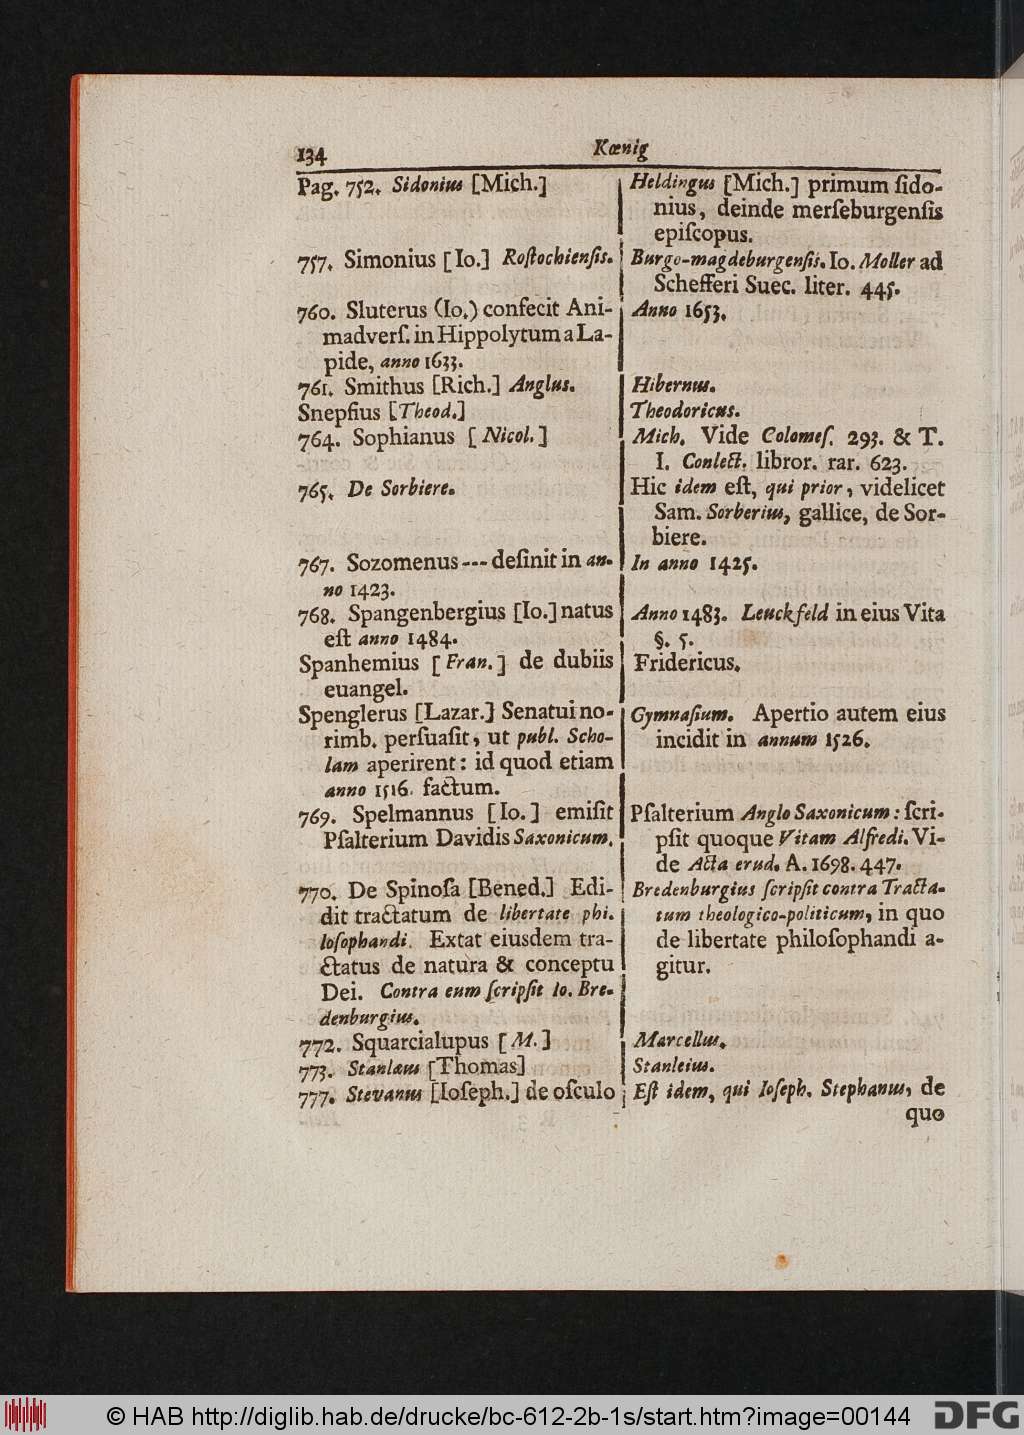 134
Kœnig
Pag. 752. Sidonius [Mich.]
757. Simonius [Io.] Roſtochienſis.
760. Sluterus (Io.) confecit Ani-
madverſ. in Hippolytum a La-
pide, anno 1633.
761. Smithus [Rich.] Anglus.
Snepfius [Theod.]
764. Sophianus [Nicol.]
765. De Sorbiere.
767. Sozomenus --- deſinit in an-
no 1423.
768. Spangenbergius [Io.] natus
eſt anno 1484.
Spanhemius [Fran.] de dubiis
euangel.
Spenglerus [Lazar.] Senatui no-
rimb. perſuaſit, ut publ. Scho-
lam aperirent: id quod etiam
anno 1516. factum.
769. Spelmannus [Io.] emiſit
Pſalterium Davidis Saxonicum.
770. De Spinoſa [Bened.] Edi-
dit tractatum de libertate phi-
loſophandi. Extat eiusdem tra-
ctatus de natura & conceptu
Dei. Contra eum ſcripſit Io. Bre-
denburgius.
772. Squarcialupus [M.]
773. Stanlæus [Thomas]
777. Stevanus [Ioſeph.] de oſculo
Heldingus [Mich.] primum ſido-
nius, deinde merſeburgenſis
epiſcopus.
Burgo-magdeburgenſis. Io. Moller ad
Schefferi Suec. liter. 445.
Anno 1653.
Hibernus.
Theodoricus.
Mich. Vide Colomeſ. 293. & T.
I. Conlect. libror. rar. 623.
Hic idem eſt, qui prior, videlicet
Sam. Sorberius, gallice, de Sor-
biere.
In anno 1425.
Anno 1483. Leuckfeld in eius Vita
§. 5.
Fridericus.
Gymnaſium. Apertio autem eius
incidit in annum 1526.
Pſalterium Anglo Saxonicum: ſcri-
pſit quoque Vitam Alfredi. Vi-
de Acta erud. A. 1698. 447.
Bredenburgius ſcripſit contra Tracta-
tum theologico-politicum, in quo
de libertate philoſophandi a-
gitur.
Marcellus.
Stanleius.
Eſt idem, qui Ioſeph. Stephanus, de
quo
© HAB http://diglib.hab.de/drucke/bc-612-2b-1s/start.htm?image=00144
DFG